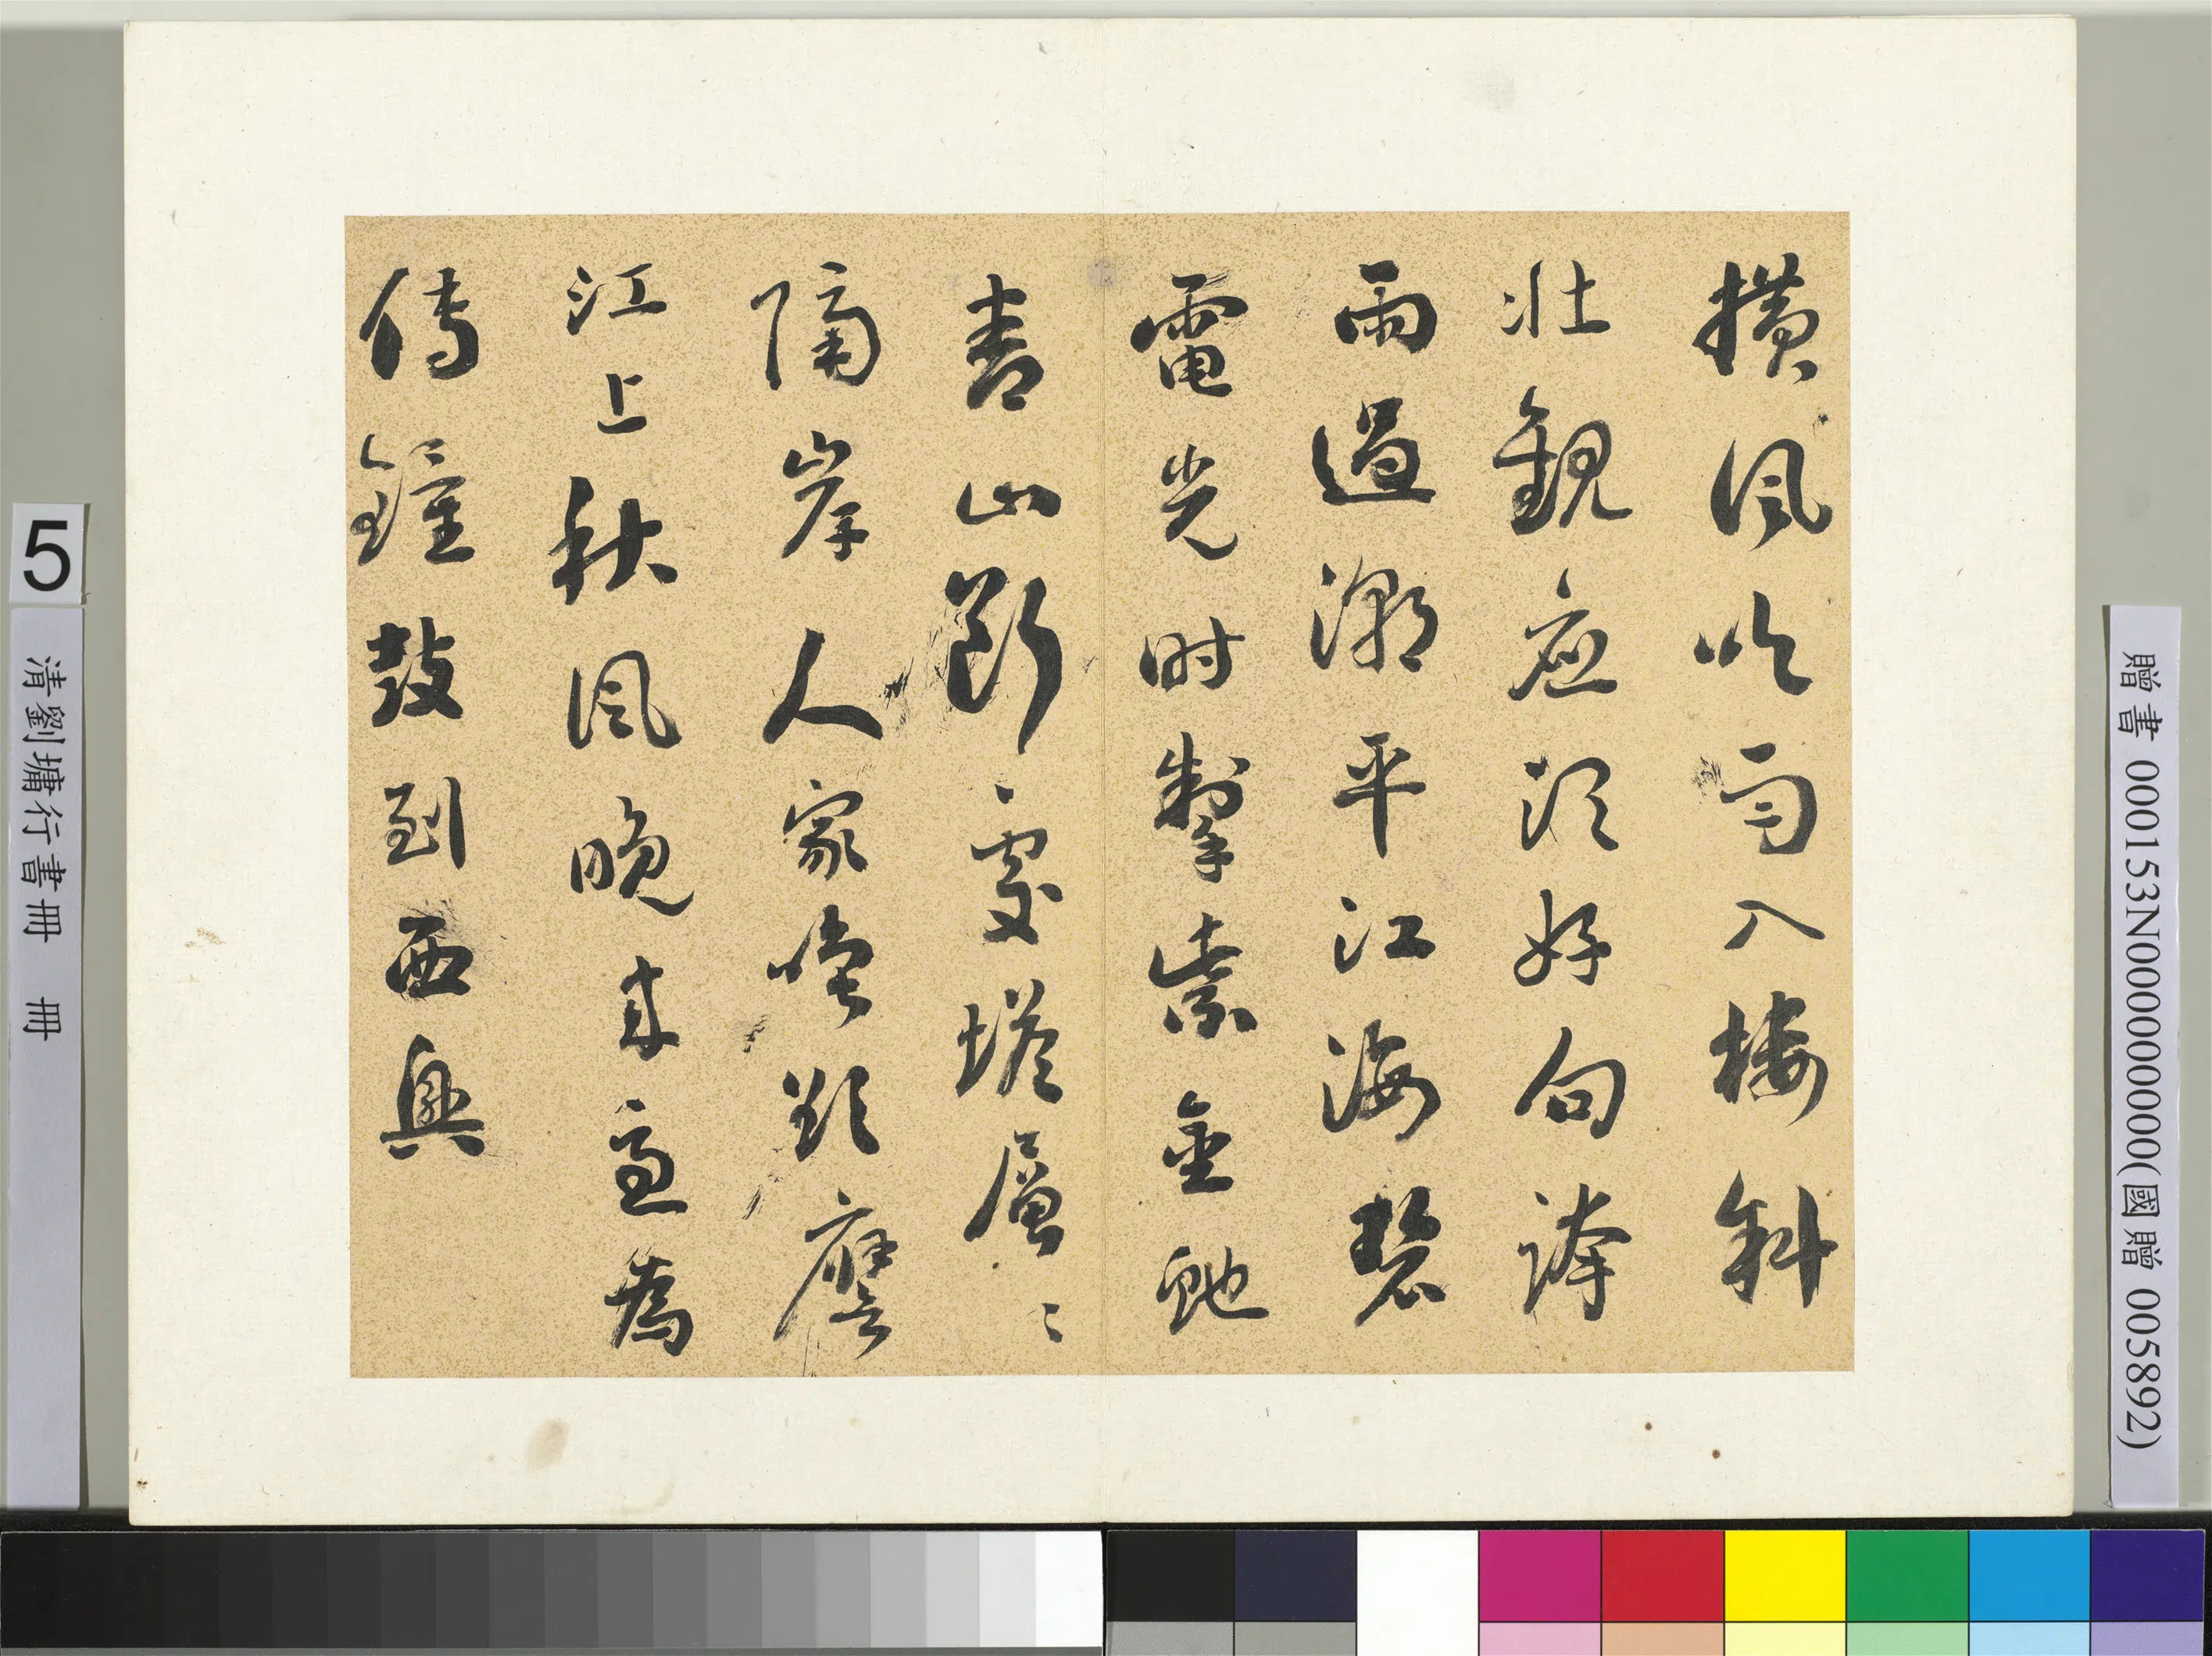 橫風吹雨入樓斜
壯觀應須好句誇
雨過潮平江海碧
電光時掣紫金虵
青山斷處塔層〻
隔岸人家喚欲譍
江上秋風晚來急為
傳鐘鼓到西興
5
清劉墉行書冊 冊
贈書 000153N000000000(國贈 005892)